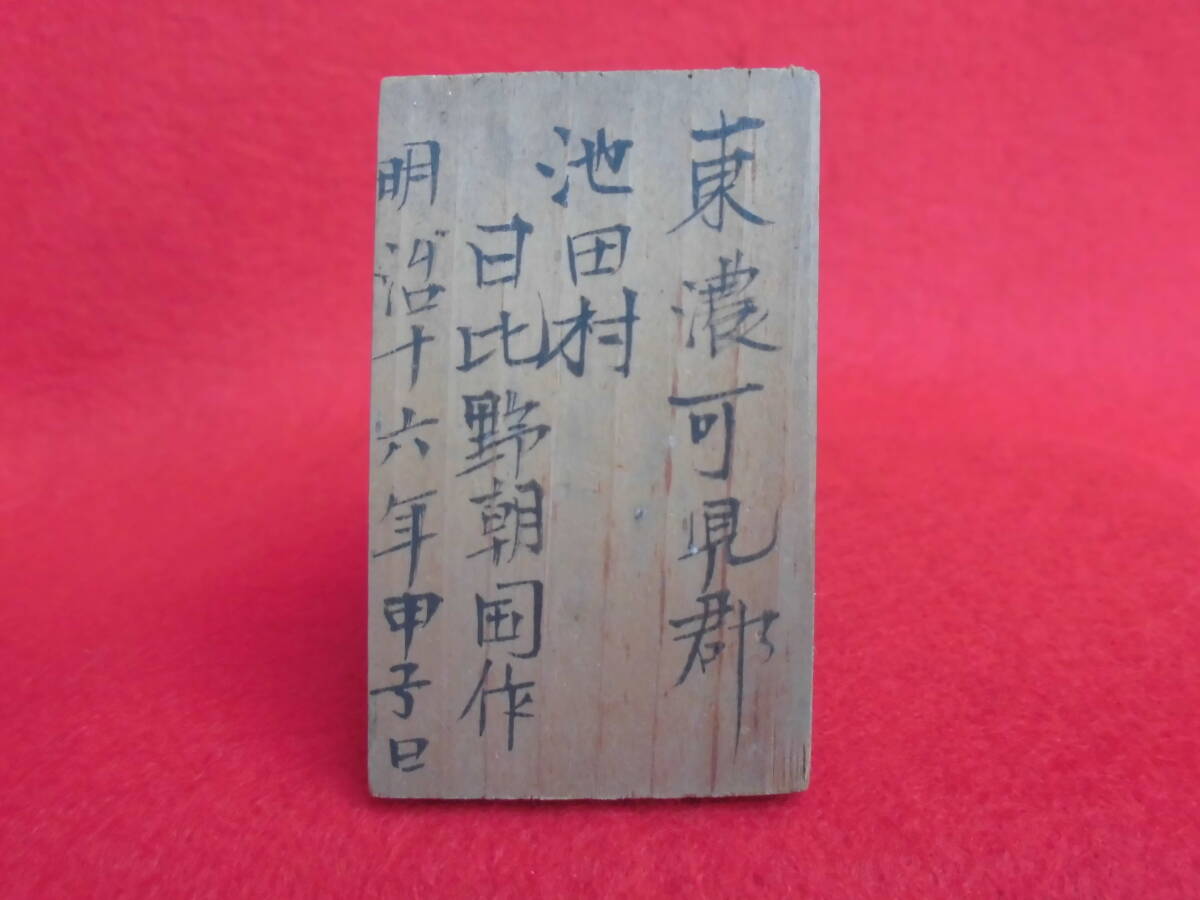 東濃可児郡
池田村
日比野朝国作
明治十六年甲子日